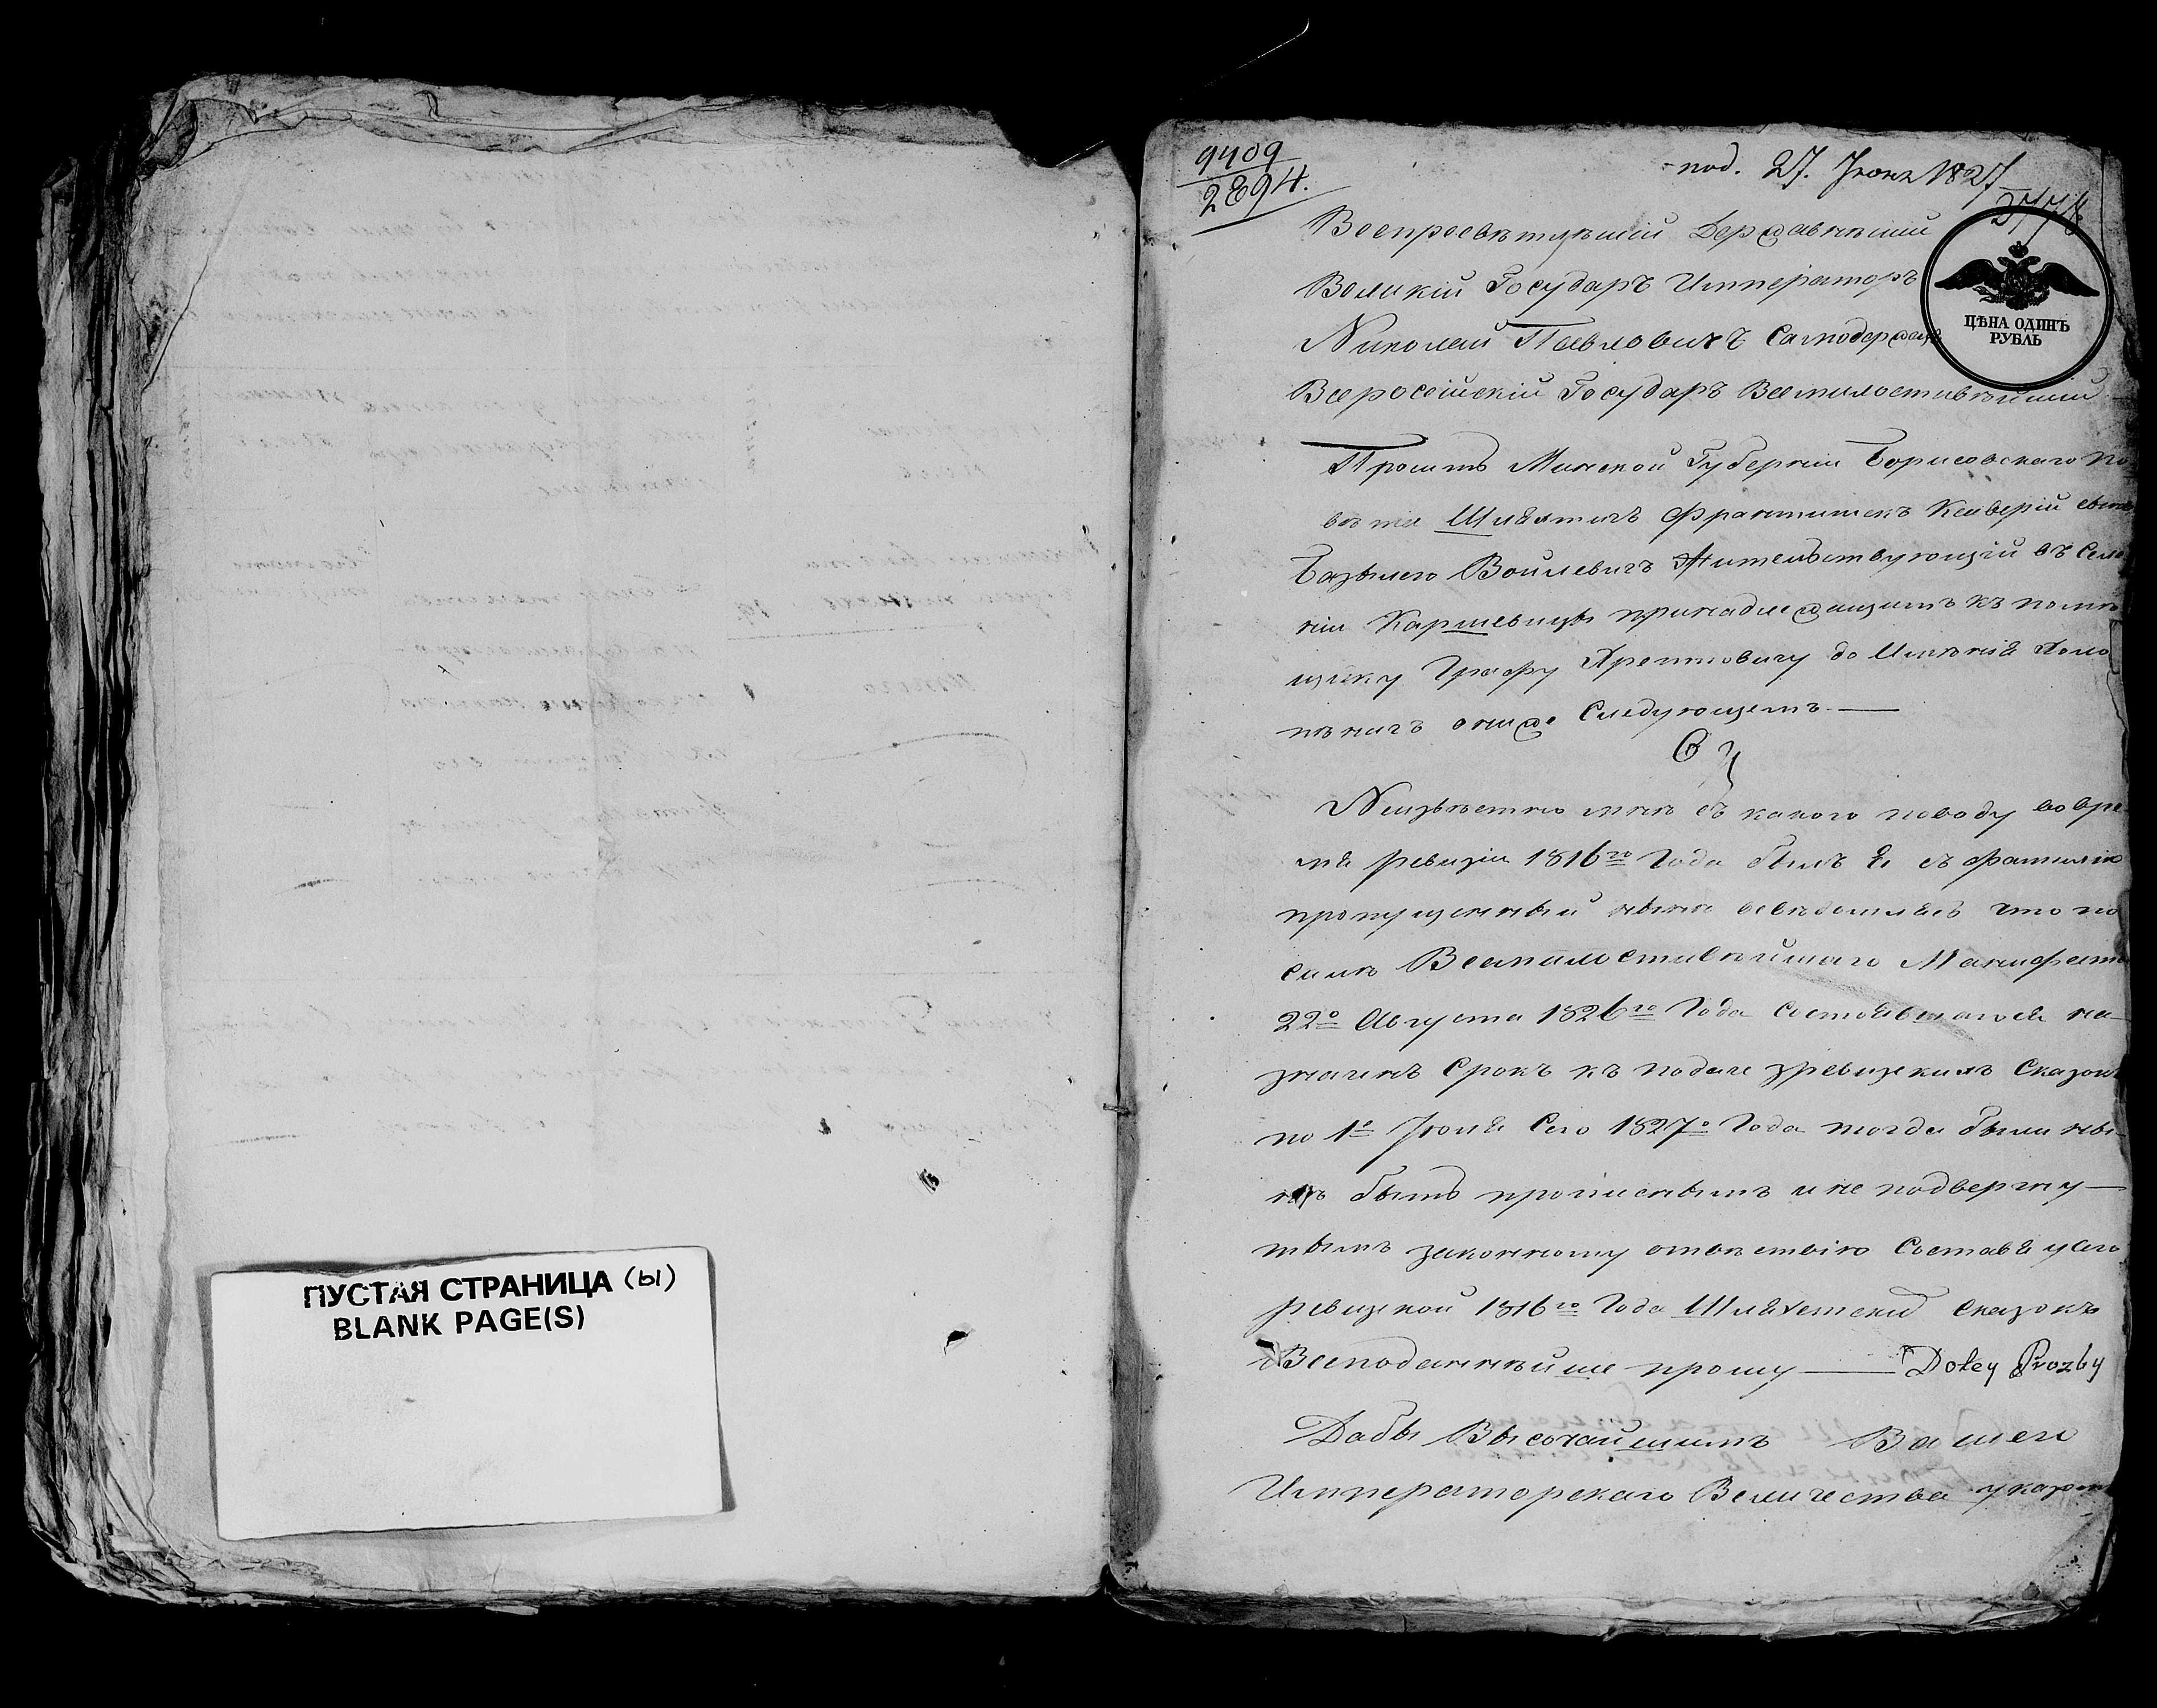 ПУСТАЯ СТРАНИЦА (ы)
BLANK PAGE(S)
9409
2894.
под. 27. Июня 1827
ЦѢНА ОДИНЪ
РУБЛЬ
Всепросвѣтлѣшій Державнѣшій
Великій Государъ Императоръ
Николай Павловичъ Самодержецъ
Всеросейскій Государъ Всемилостивѣйшій
Проситъ Минской Губерніи Борисовскаго По-
вѣта Шляхтичъ Францишекъ Ксаверій сынъ
Базылего Войлевичъ Жительствующій въ Селе
ніи Каршевицы принадлежащимъ къ помѣ
щику Графу Хрептовичу до Имѣнія
о ниже Следующемъ.
Неизвѣстно мнѣ съ какого поводу во вре-
мя ревизіи 1816го Года былъ я съ Фамиліею
пропущенный нынѣ освѣдомлясь что по
силѣ Всемилостивѣйшаго Манифеста
22о Августа 1826го Года Состоявшагося на-
значенъ Срокъ къ подаче зревизскихъ Сказокъ
по 1о Июня Сего 1827о Года тогда были ны-
нѣ быть прописнымъ и не подвергну-
тымъ законному отвѣствію Составя у сего
ревизской 1816го Года Шляхетскій сказокъ
Всеподаннѣйше прошу — Dokey Prozby
Дабы Высочайшимъ Вашего
Императорскаго Величества указомъ